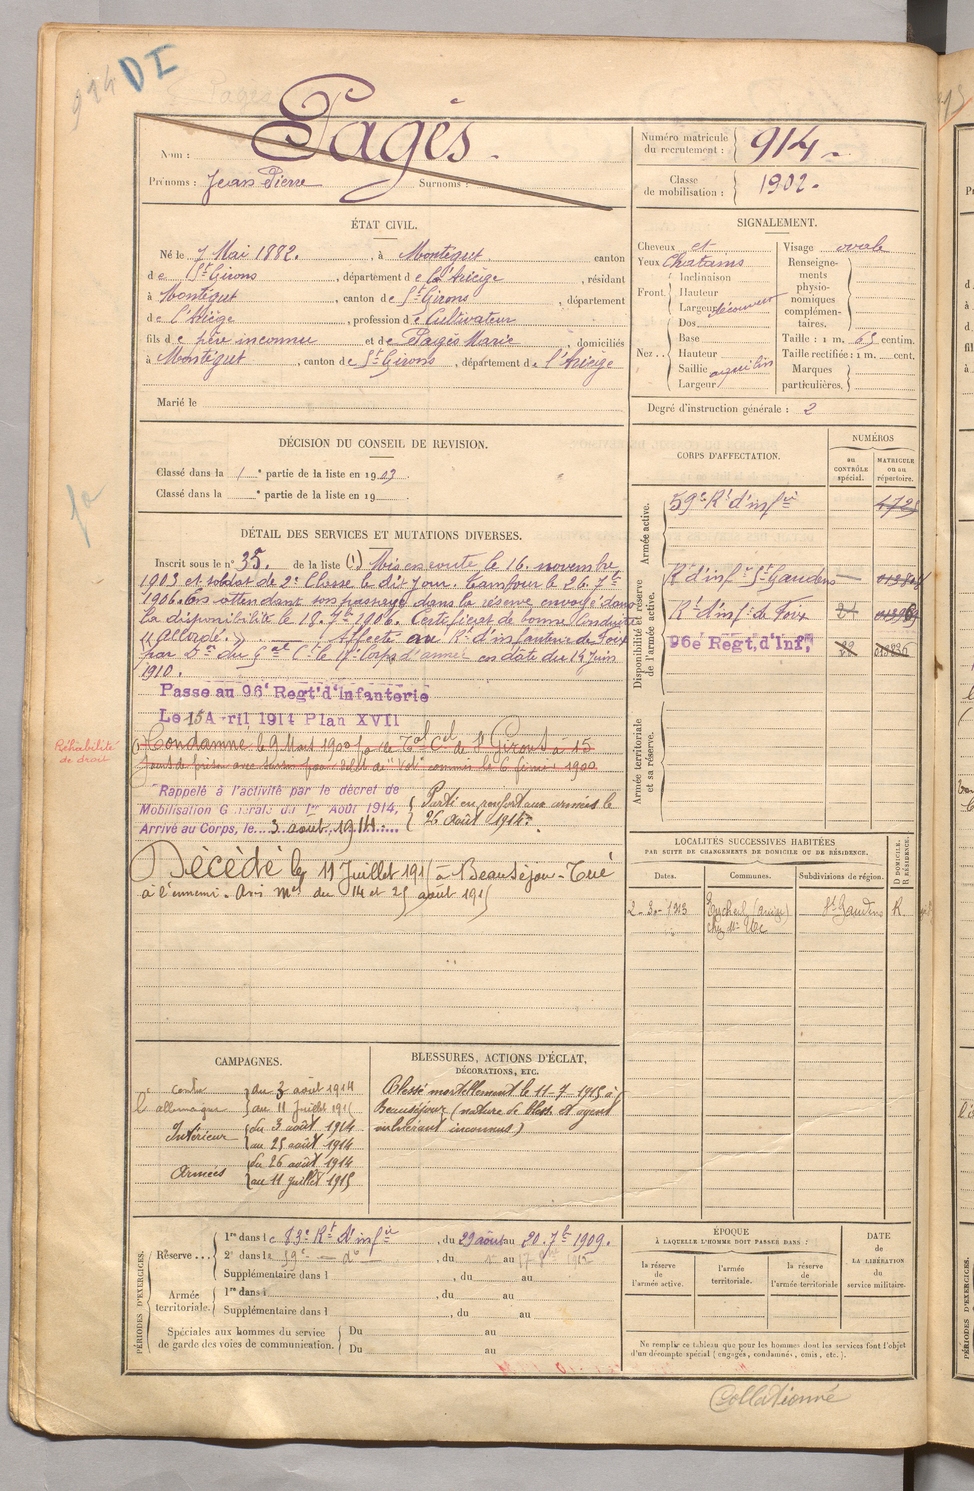 914 DI
Nom : Pagès
Prénoms : Jean Pierre Surnoms :
Numéro matricule du recrutement : 914
Classe de mobilisation : 1902.
ÉTAT CIVIL.
Né le 7 Mai 1882. , à Montégut canton
de St Girons , département de l'Ariège , résidant
à Montégut , canton de St Girons , département
de l'Ariège , profession de Cultivateur
fils de père inconnu et de Pagès Marie , domiciliés
à Montégut , canton de St Girons , département de l'Ariège
Marié le
SIGNALEMENT.
Cheveux et
Yeux Chatains
Front. Inclinaison
Hauteur
Largeur découvert
Nez . . Dos
Base
Hauteur
Saillie aquilin
Largeur
Visage ovale
Renseignements physionomiques complémentaires.
Taille : 1 m. 65 centim.
Taille rectifiée : 1 m. cent.
Marques particulières.
Degré d'instruction générale : 2
DÉCISION DU CONSEIL DE REVISION.
Classé dans la 1 e partie de la liste en 1903.
Classé dans la e partie de la liste en 19
CORPS D'AFFECTATION.
NUMÉROS
au CONTRÔLE spécial.
MATRICULE ou au répertoire.
Armée active.
59e Rt d'infie
Disponibilité et réserve de l'armée active.
Rt d'infie St Gaudens
Rt d'infie de Foix
96e Regt, d'Inf,
Armée territoriale et sa réserve.
DÉTAIL DES SERVICES ET MUTATIONS DIVERSES.
Inscrit sous le n° 35. de la liste (1) Mis en route le 16 novembre
1903 et soldat de 2e Classe le dit jour.
1906. En attendant son passage dans la réserve envoyé dans
la disponibilité le 18. 7bre 1906. Certificat de bonne Conduite
"accordé." Affecté au Rt d'infanterie de Foix
en date du 14 Juin
1910.
Passe au 96e Regt d'infanterie
Le 15 A ril 1914 Plan XVII
Réhabilité de droit
Condamné le 9 Mars 1900 par le Tal Cel de St Girons à 15
jours de prison avec sursis pour délit de "Vol" commis le 6 février 1900
Rappelé à l'activité par le décret de
Mobilisation Générale du 1er Août 1914,
Arrivé au Corps, le 3 août 1914
Parti en renfort aux armées le
26 août 1914.
Décédé le 11 Juillet 1915 à Beauséjour - Tué
à l'ennemi. Avis mel du 14 et 25 août 1915
LOCALITÉS SUCCESSIVES HABITÉES
PAR SUITE DE CHANGEMENTS DE DOMICILE OU DE RÉSIDENCE.
D DOMICILE. R RÉSIDENCE.
Dates. Communes. Subdivisions de région.
2-3-1913 St Gaudens R.
CAMPAGNES.
contre l'allemagne du 3 août 1914
au 11 Juillet 1915
Intérieur du 3 août 1914
au 25 août 1914
Armées du 26 août 1914
au 11 juillet 1915
BLESSURES, ACTIONS D'ÉCLAT,
DÉCORATIONS, ETC.
Blessé mortellement le 11-7-1915 à
Beauséjour (nature de bless. et agent
vulnérant inconnus)
PÉRIODES D'EXERCICES.
Réserve . . . 1re dans le 83e Rt d'infie , du 29 août au 20. 7bre 1909.
2e dans le 59e - do , du au 17 1912
Supplémentaire dans l , du au
Armée territoriale. 1re dans l , du au
Supplémentaire dans l , du au
Spéciales aux hommes du service de garde des voies de communication. Du au
Du au
ÉPOQUE
À LAQUELLE L'HOMME DOIT PASSER DANS :
la réserve de l'armée active.
l'armée territoriale.
la réserve de l'armée territoriale
DATE DE LA LIBÉRATION du service militaire.
Ne remplir ce tableau que pour les hommes dont les services font l'objet
d'un décompte spécial (engagés, condamnés, omis, etc.).
Collationné